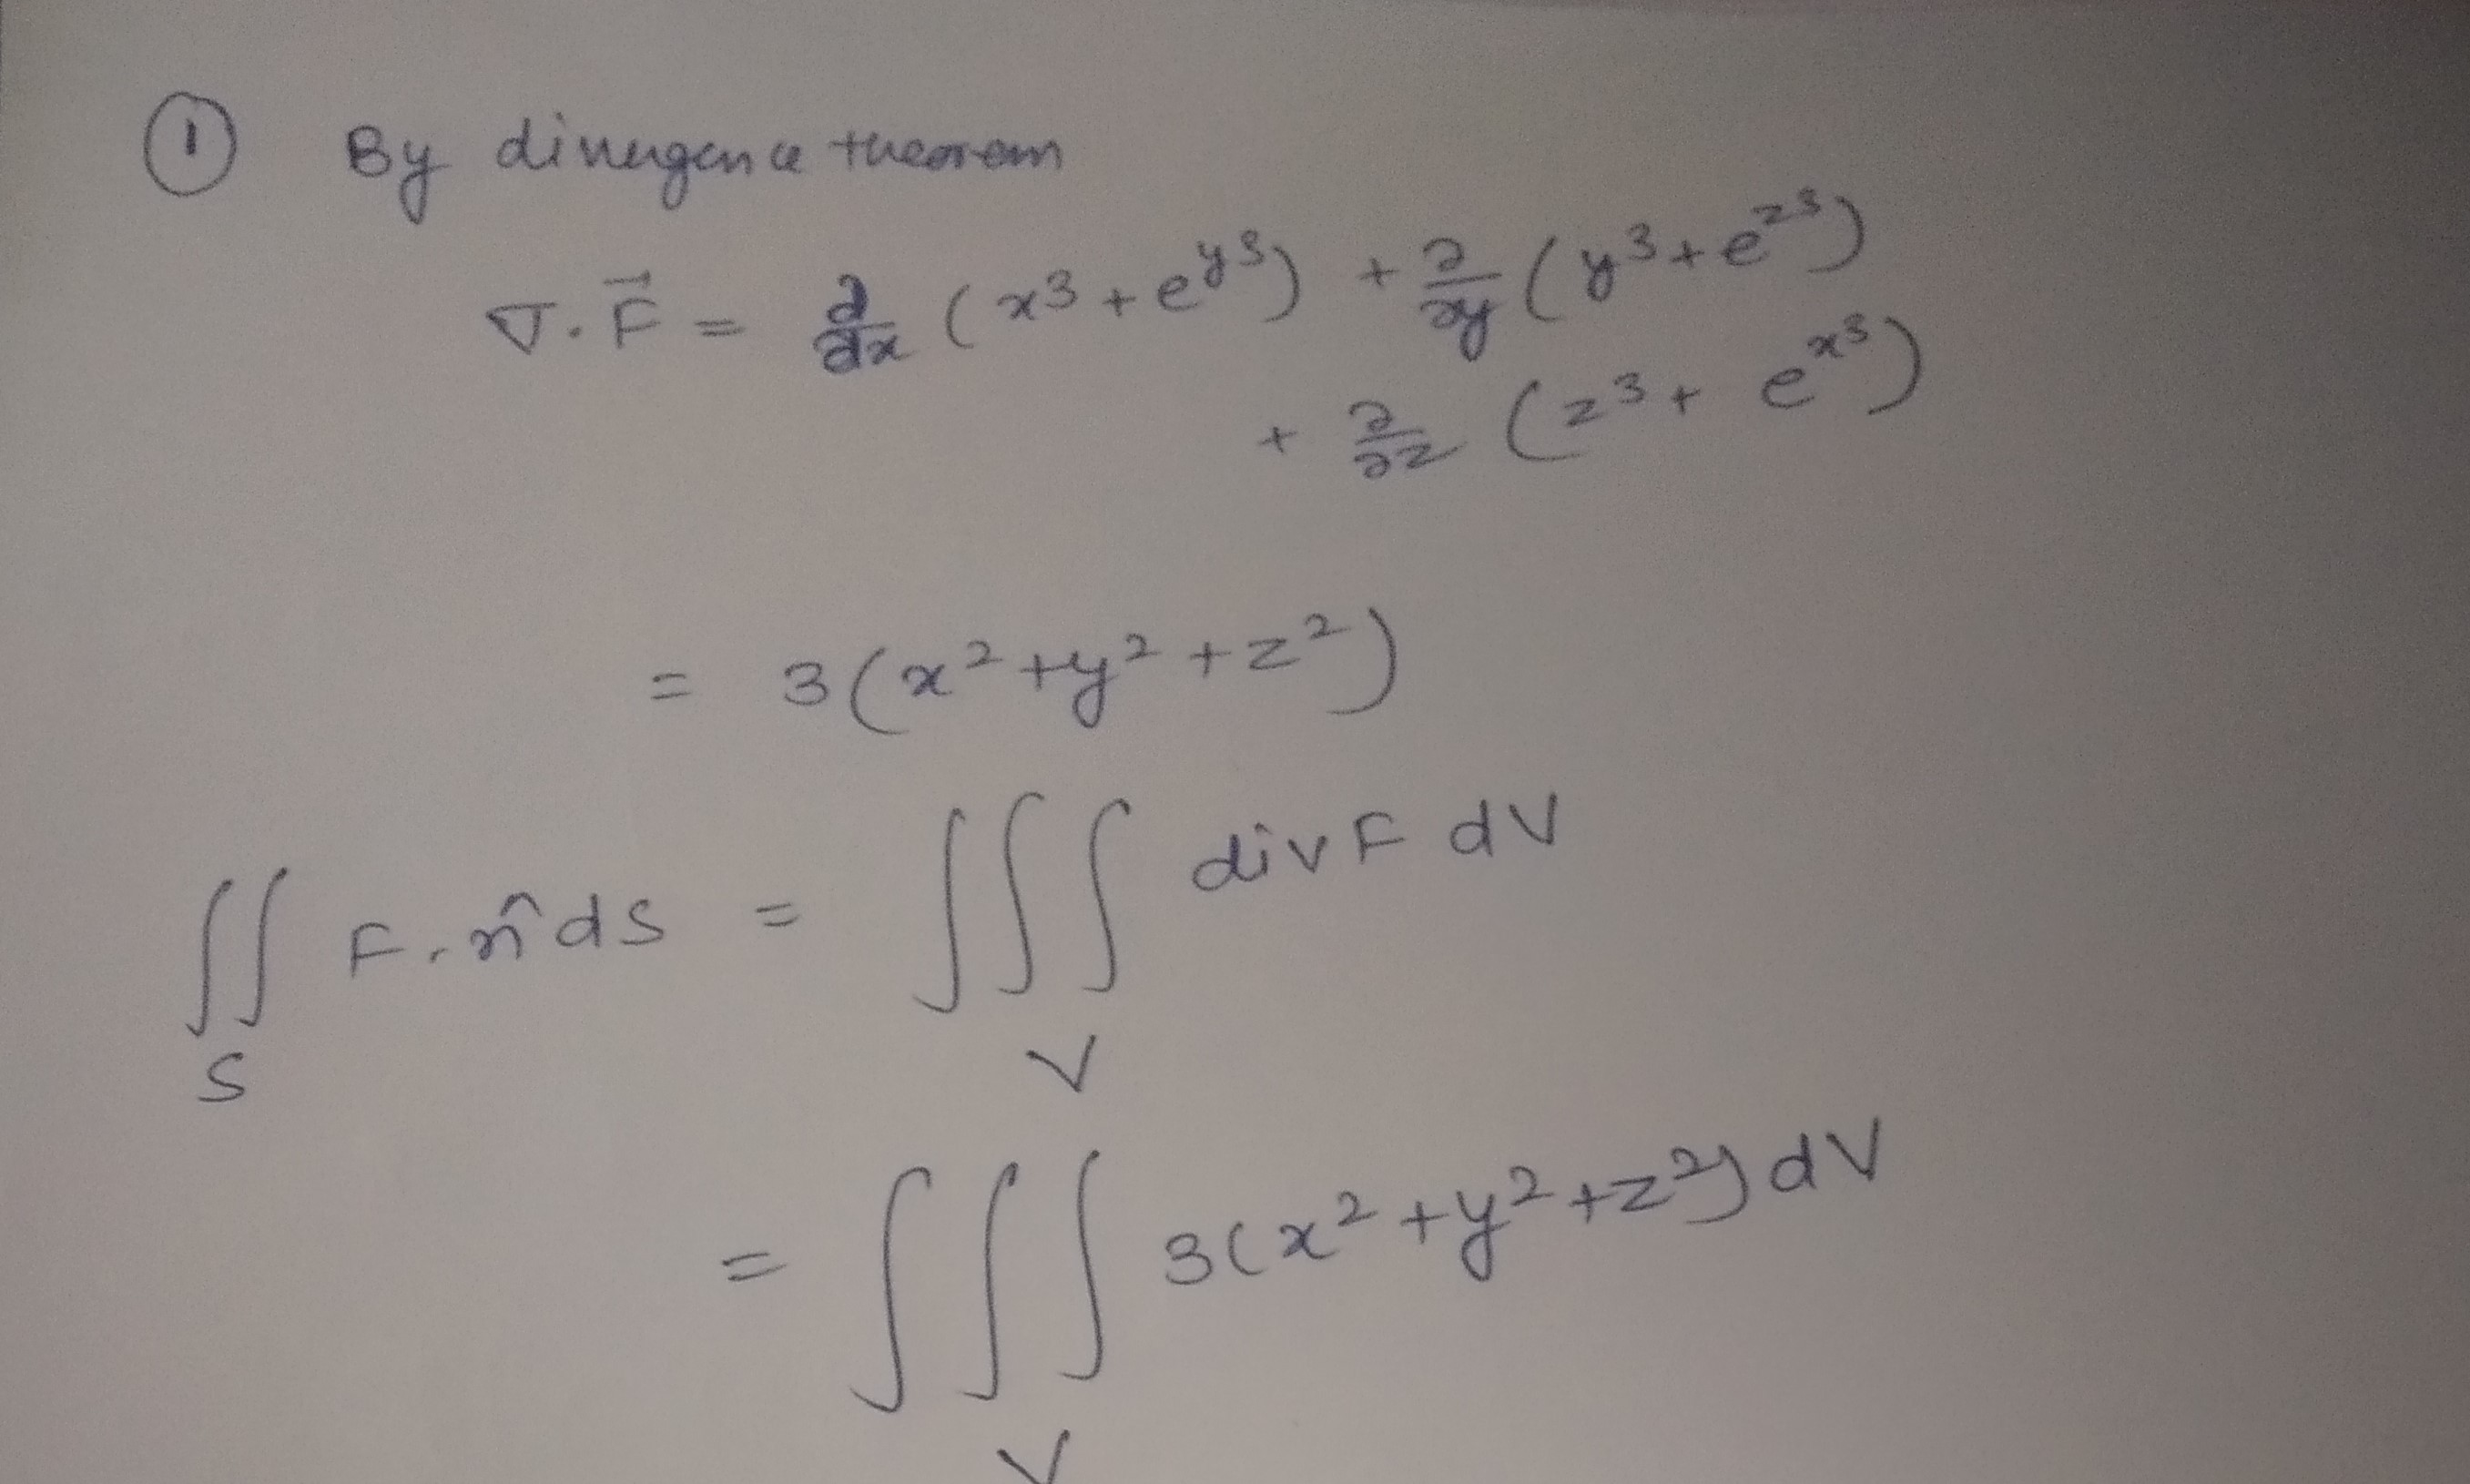 ① By divergence theorem
∇.F⃗ = ∂/∂x (x³ + e^y³) + ∂/∂y (y³ + e^z³)
+ ∂/∂z (z³ + e^x³)
= 3(x² + y² + z²)
∬_S F.n̂ ds = ∭_V div F dV
= ∭_V 3(x² + y² + z²) dV